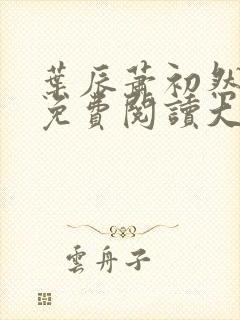 葉辰蕭初然
免費閱讀大
雲舟子